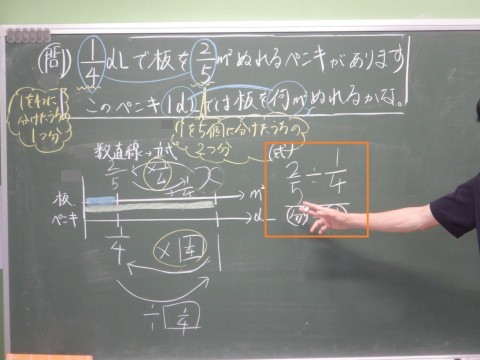 (問) 1/4 dLで板を 2/5 m²ぬれるペンキがあります
このペンキ1dLでは板を何m²ぬれるかな。
1を4つに
分けたうちの
1つ分
1を5個に分けたうちの
2つ分
数直線→立式
(式)
2/5 ÷ 1/4
2/5
x
板
m²
ペンキ
1/4
1
× 1/4
÷ 1/4